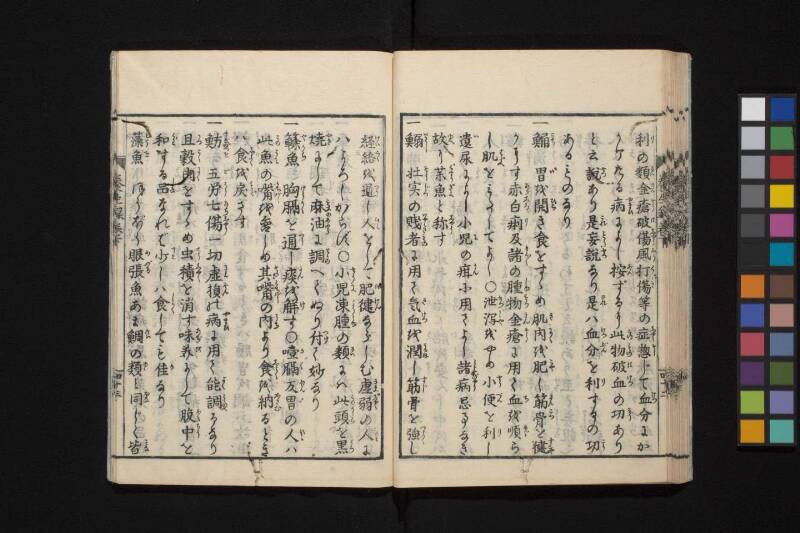 利の類金瘡破傷風打傷等の症惣じて血分にか
りたる病によし按ずるに此物破血の功あり
と云説あり是妄説なり是ハ血分を利するの功
あるものなり
一鯔 胃を開き食をすゝめ肌肉を肥し筋骨を健
にす赤白痢及諸の腫物金瘡に用て血を順ら
し肌を
てよし〇泄泻を止め小便を利し
遺尿によし小児の疳に用てよし諸病忌なき
故に薬魚と称す
一 壮実の賎者に用て気血を潤し筋骨を強し
経絡を通し人をして肥健ならしむ虚弱の人に
ハよろしからず〇小児凍腫の類にハ此頭を黒
焼にして麻油に調へてぬり付て妙なり
一 魚 胸膈を通し痰を解す〇噎膈反胃の人ハ
此魚の嘴を 其嘴の内より食を納るとき
ハ食を戻さず
一魴 五労七傷一切虚損の病に用て能調ふなり
且穀肉をすゝめ虫積を消す味美にして腹中を
和する品なれど少しハ食しても佳なり
藻魚 眼張魚あま鯛の類も同じく皆